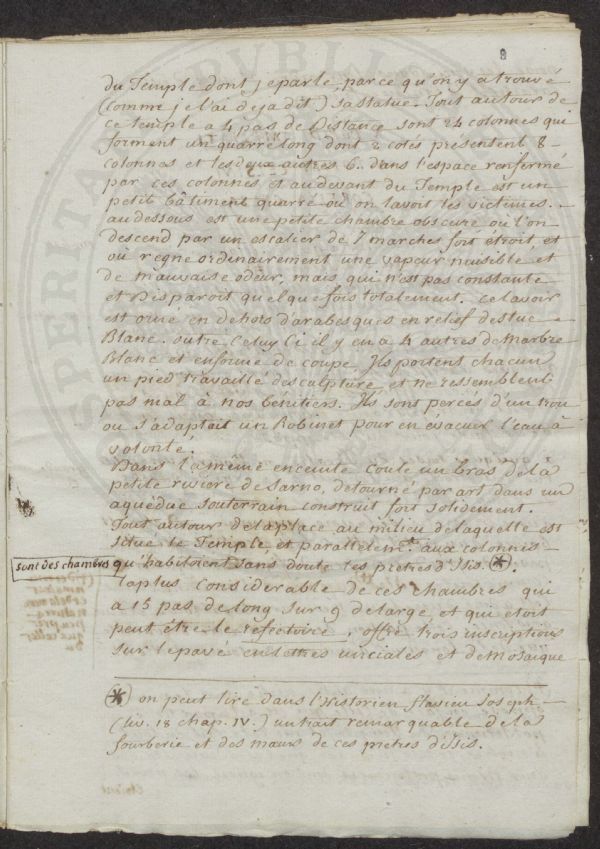 8
du Temple dont je parle, parce qu'on y a trouvé
(comme je l'ai deja dit) sa statue. Tout autour de
ce temple a 4 pas de Distance sont 24 colonnes qui
forment un quarré long dont 2 cotés présentent 8
colonnes et les deux autres 6. dans l'espace renfermé
par ces colonnes et au devant du Temple est un
petit bâtiment quarré où on lavoit les victimes.
au dessous est une petite chambre obscure où l'on
descend par un escalier de 7 marches fort étroit, et
où regne ordinairement une vapeur nuisible et
de mauvaise odeur, mais qui n'est pas constante
et Disparoit quelquefois totalement. Ce lavoir
est orné en dehors d'arabesques en relief de stuc
Blanc. outre Celuy Ci il y en a 4 autres de Marbre
Blanc et en forme de coupe. Ils portent chacun
un pied travaillé de sculpture et ne ressemblent
pas mal à nos bénitiers. Ils sont percés d'un trou
ou s'adaptoit un Robinet pour en évacuer l'eau à
volonté.
Dans la même enceinte coule un bras de la
petite riviere de Sarno, detourné par art dans un
aquéduc souterrain construit fort solidement.
Tout autour de la place au milieu de laquelle est
situé le Temple et parallelem.t aux colonnes
sont des chambres qu'habitoient sans doute les pretres d'Isis. (*)
la plus considerable de ces chambres qui
a 15 pas de long sur 9 de large et qui etoit
peut être le refectoire, offre trois inscriptions
sur le pavé en lettres unciales et de Mosaique
(*) on peut lire dans l'Historien flavien Joseph
(liv. 18 chap. IV.) un trait remarquable de la
fourberie et des mœurs de ces pretres d'Isis.